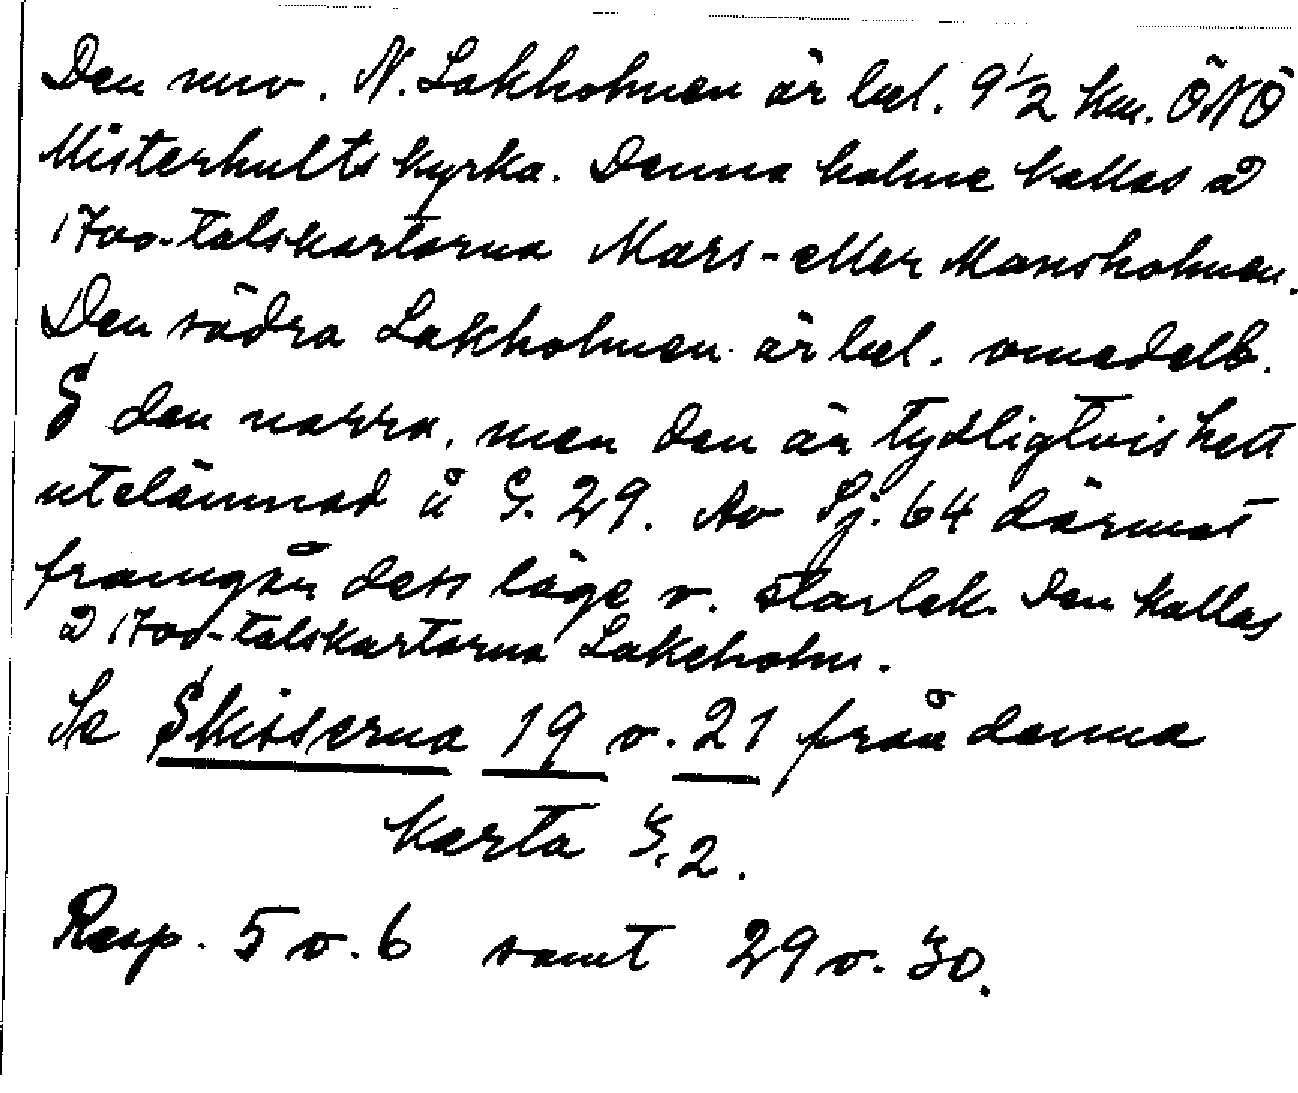 Den nuv. N. Lakholmen är bel. 9 1/2 km. ÖNÖ
Misterhults kyrka. Denna holme kallas å
1700-talskartorna Mars- eller Mansholmen.
Den södra Lakholmen är bel. omedelb.
S den norra, men den är tydligtvis helt
utelämnad å G. 29. Av Sj. 64 däremot
framgår dess läge o. storlek. Den kallas
å 1700-talskartorna Lakeholm.
Se Skisserna 19 o. 21 från denna
karta G. 2.
Resp. 5 o. 6 samt 29 o. 30.